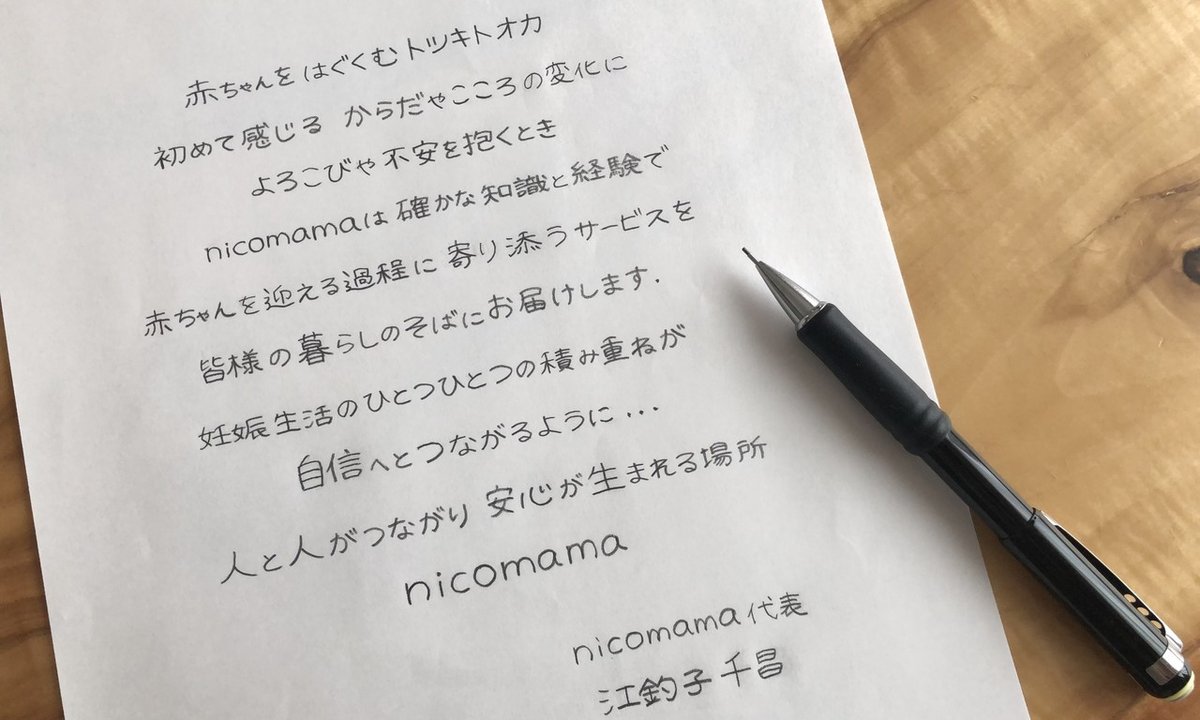 赤ちゃんをはぐくむトツキトオカ
初めて感じる からだやこころの変化に
よろこびや不安を抱くとき
nicomamaは確かな知識と経験で
赤ちゃんを迎える過程に寄り添うサービスを
皆様の暮らしのそばにお届けします.
妊娠生活のひとつひとつの積み重ねが
自信へとつながるように...
人と人がつながり 安心が生まれる場所
nicomama
nicomama代表
江釣子千昌